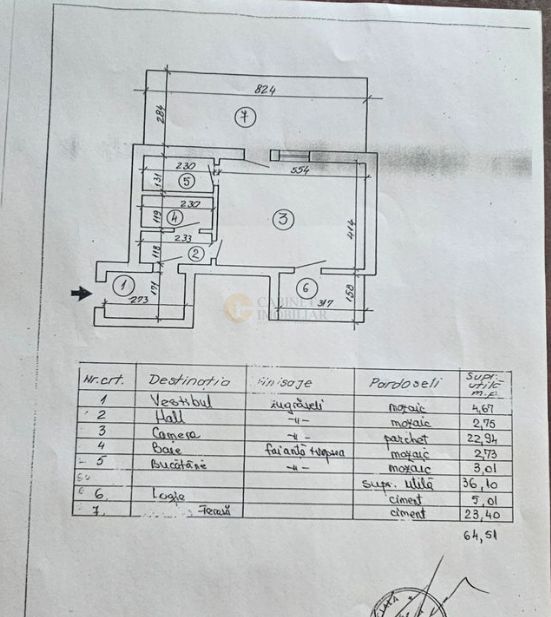 824
7
284
230
5
131
554
230
4
119
3
233
118
2
414
1
171
273
6
317
158
CABINET
IMOBILIAR
Nr.crt. Destinația Finisaje Pardoseli Supr. utilă m.p.
1 Vestibul zugrăveli mozaic 4,67
2 Hall -"- mozaic 2,75
3 Camera -"- parchet 22,94
4 Baie faianță+vopsea mozaic 2,73
5 Bucătărie -"- mozaic 3,01
Supr. utilă 36,10
6. Logie ciment 5,01
7. Terasă ciment 23,40
64,51